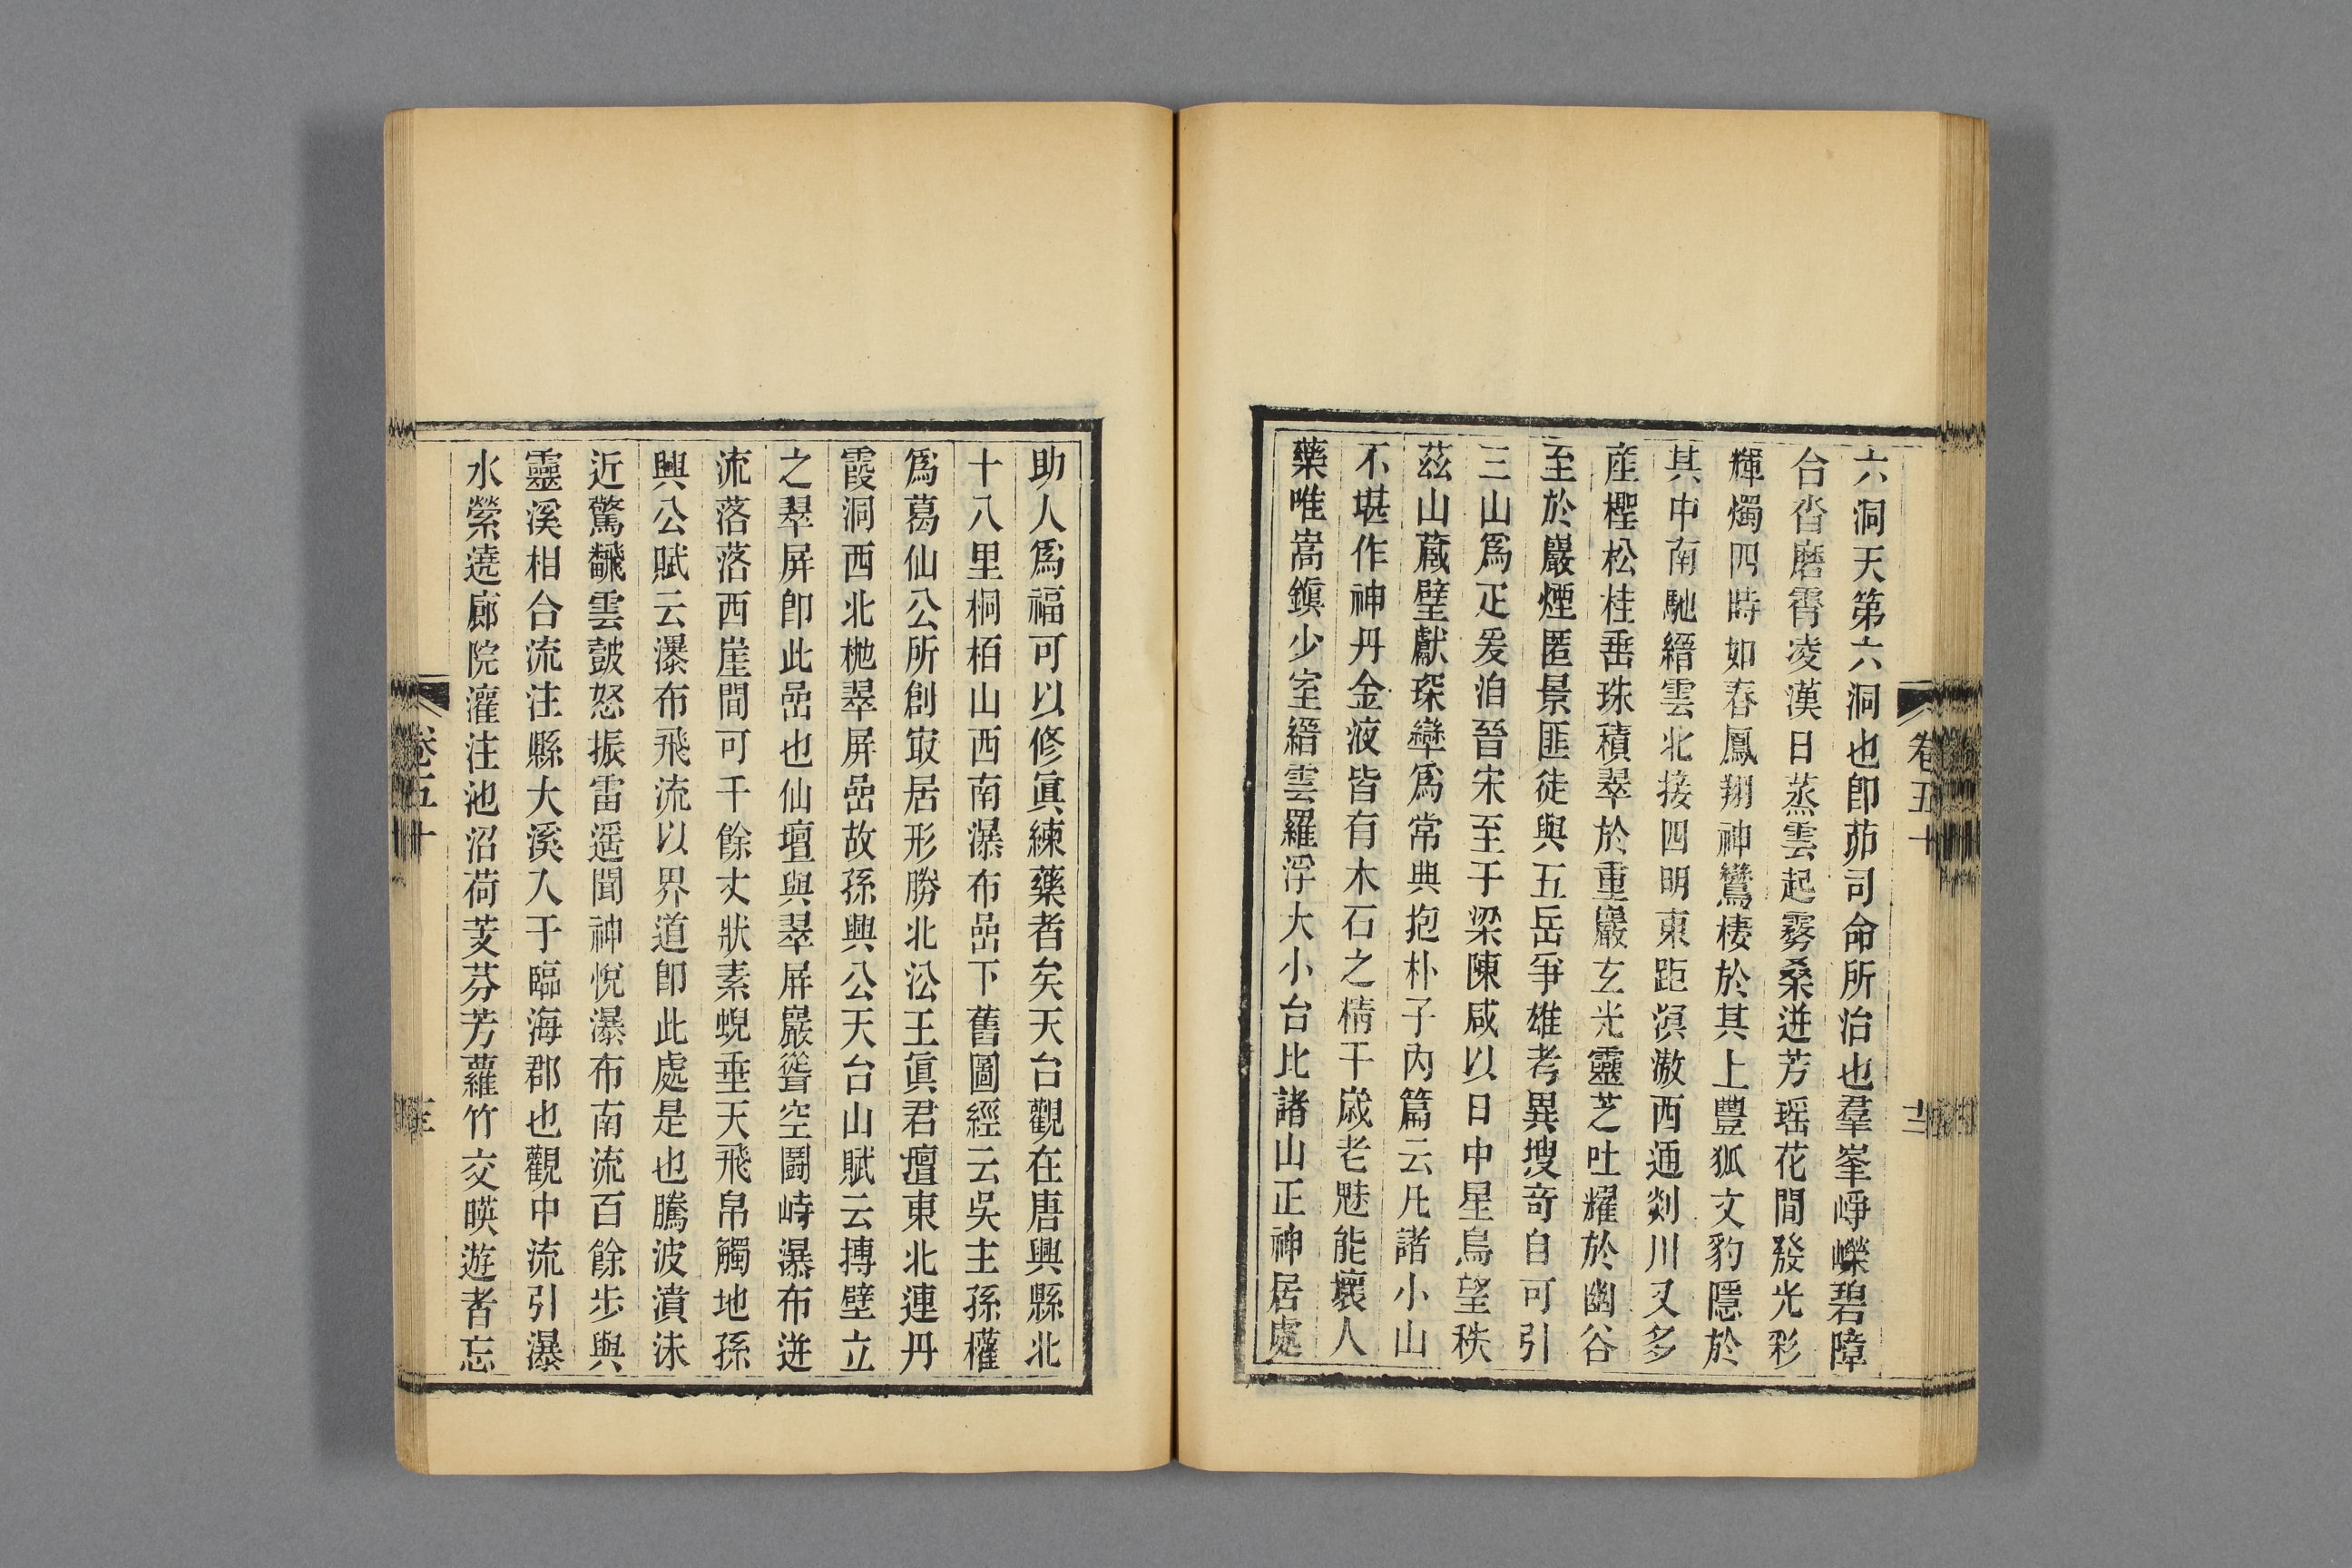 六洞天第六洞也卽茆司命所治也羣峯崢嶸碧障
台沓磨霄凌漢日蒸雲起霧桑迸芳瑶花間發光彩
輝燭四時如春鳳翔神鸞棲於其上豐狐文豹隱於
其中南馳縉雲北接四明東距溟渤西通剡川又多
產檉松桂垂珠積翠於重巖玄光靈芝吐耀於幽谷
至於巖煙匿景匪徒與五岳爭雄考異搜奇自可引
三山爲疋爰洎晉宋至于梁陳咸以日中星鳥望秩
茲山藏璧獻琛率爲常典抱朴子內篇云凡諸小山
不堪作神丹金液皆有木石之精千歲老魅能壞人
藥唯嵩鎭少室縉雲羅浮大小台比諸山正神居處
卷五十
助人爲福可以修眞練藥者矣天台觀在唐興縣北
十八里桐栢山西南瀑布嵓下舊圖經云吳主孫權
爲葛仙公所創㝡居形勝北㳂王眞君壇東北連丹
霞洞西北枕翠屏嵓故孫興公天台山賦云摶壁立
之翠屏卽此嵓也仙壇與翠屏巖聳空鬭峙瀑布迸
流落落西崖間可千餘丈狀素蜺垂天飛帛觸地孫
興公賦云瀑布飛流以界道卽此處是也騰波濆沫
近驚飜雲皷怒振雷遥聞神悅瀑布南流百餘步與
靈溪相合流注縣大溪入于臨海郡也觀中流引瀑
水縈遶廊院灌注池沼荷芰芬芳蘿竹交暎遊者忘
卷五十